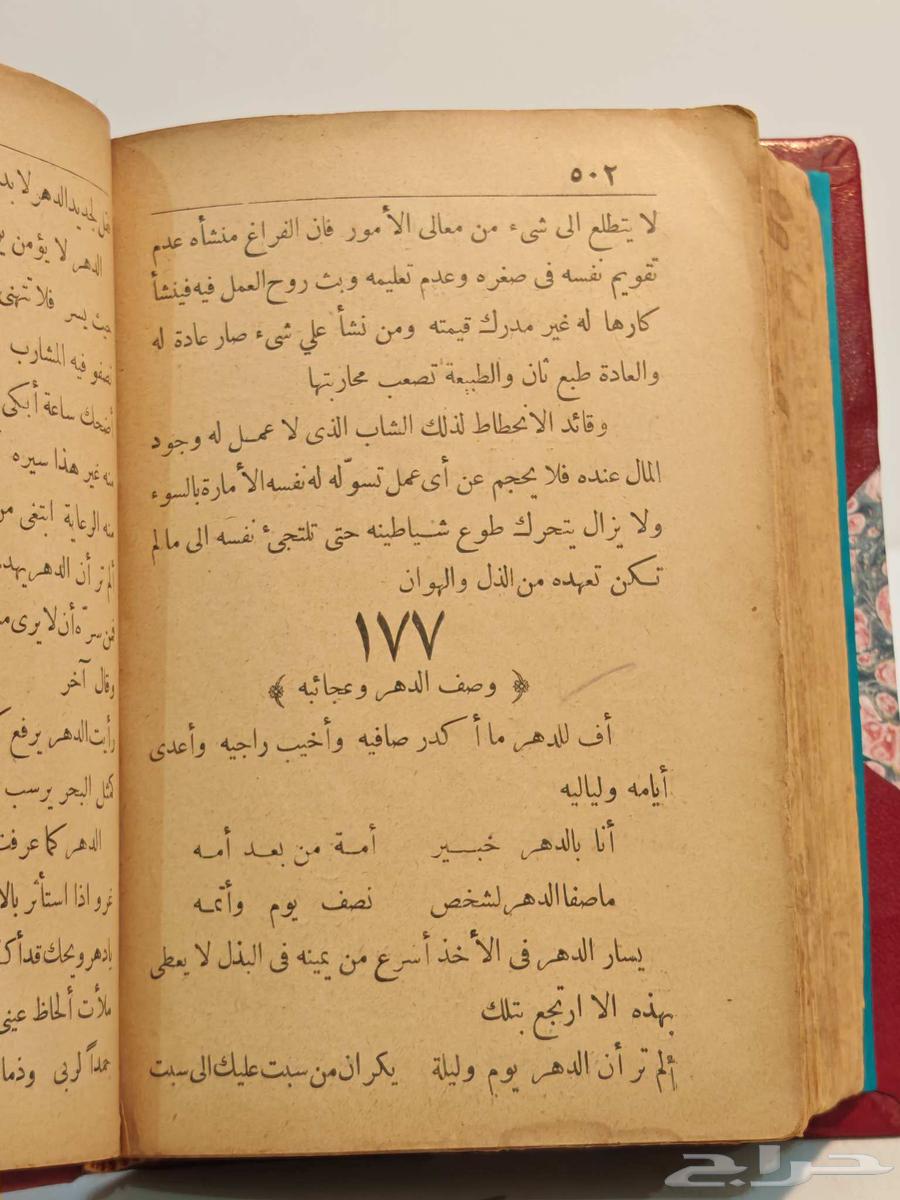 ٥٠٢
لا يتطلع الى شىء من معالى الأمور فان الفراغ منشأه عدم
تقويم نفسه فى صغره وعدم تعليمه وبث روح العمل فيه فينشأ
كارها له غير مدرك قيمته ومن نشأ علي شىء صار عادة له
والعادة طبع ثان والطبيعة تصعب محاربتها
وقائد الانحطاط لذلك الشاب الذى لا عمل له وجود
المال عنده فلا يحجم عن أى عمل تسوّله له نفسه الأمارة بالسوء
ولا يزال يتحرك طوع شياطينه حتى تلتجىء نفسه الى مالم
تكن تعهده من الذل والهوان
١٧٧
﴿ وصف الدهر وعجائبه ﴾
أف للدهر ما أكدر صافيه وأخيب راجيه وأعدى
أيامه ولياليه
أنا بالدهر خبير أمة من بعد أمه
ماصفا الدهر لشخص نصف يوم وأتمه
يسار الدهر فى الأخذ أسرع من يمينه فى البذل لا يعطى
بهذه الا ارتجع بتلك
ألم تر أن الدهر يوم وليلة يكران من سبت عليك الى سبت
لجديد الدهر لا
الدهر لا يؤمن
حيث يسر فلا تتهنى
تصفو فيه المشارب
أضحك ساعة أبكى
منه غير هذا سيره
منه الرعاية ابتغى
ألم تر أن الدهر
فمن سرّه أن لا يرى
وقال آخر
رأيت الدهر يرفع
كمثل البحر يرسب
الدهر كما عرفت
غرو اذا استأثر
يادهر ويحك قد
ملأت ألحاظ عينى
حمداً لربى
حراج